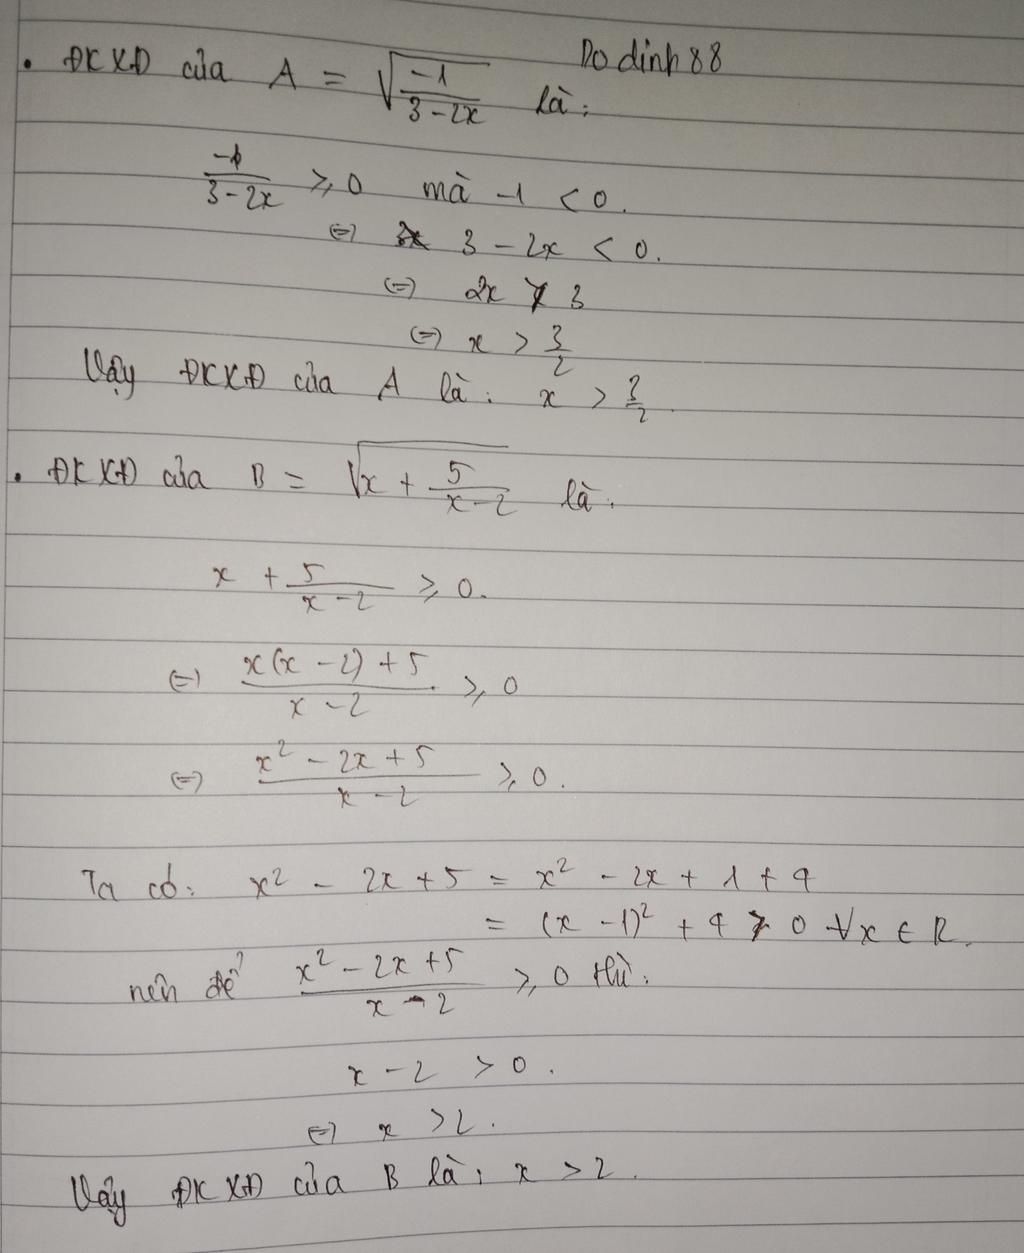 • ĐKXĐ của A = √(-1/(3-2x)) là: Do dinh 88
-1/(3-2x) ⩾ 0 mà -1 < 0.
⇔ 3 - 2x < 0.
⇔ 2x > 3
⇔ x > 3/2
Vậy ĐKXĐ của A là: x > 3/2.
• ĐKXĐ của B = √(x + 5/(x-2)) là.
x + 5/(x-2) ⩾ 0.
⇔ (x(x-2)+5)/(x-2) ⩾ 0
⇔ (x² - 2x + 5)/(x-2) ⩾ 0.
Ta có: x² - 2x + 5 = x² - 2x + 1 + 4
= (x-1)² + 4 > 0 ∀x ∈ R.
nên để (x² - 2x + 5)/(x-2) ⩾ 0 thì:
x - 2 > 0.
⇔ x > 2.
Vậy ĐKXĐ của B là: x > 2.